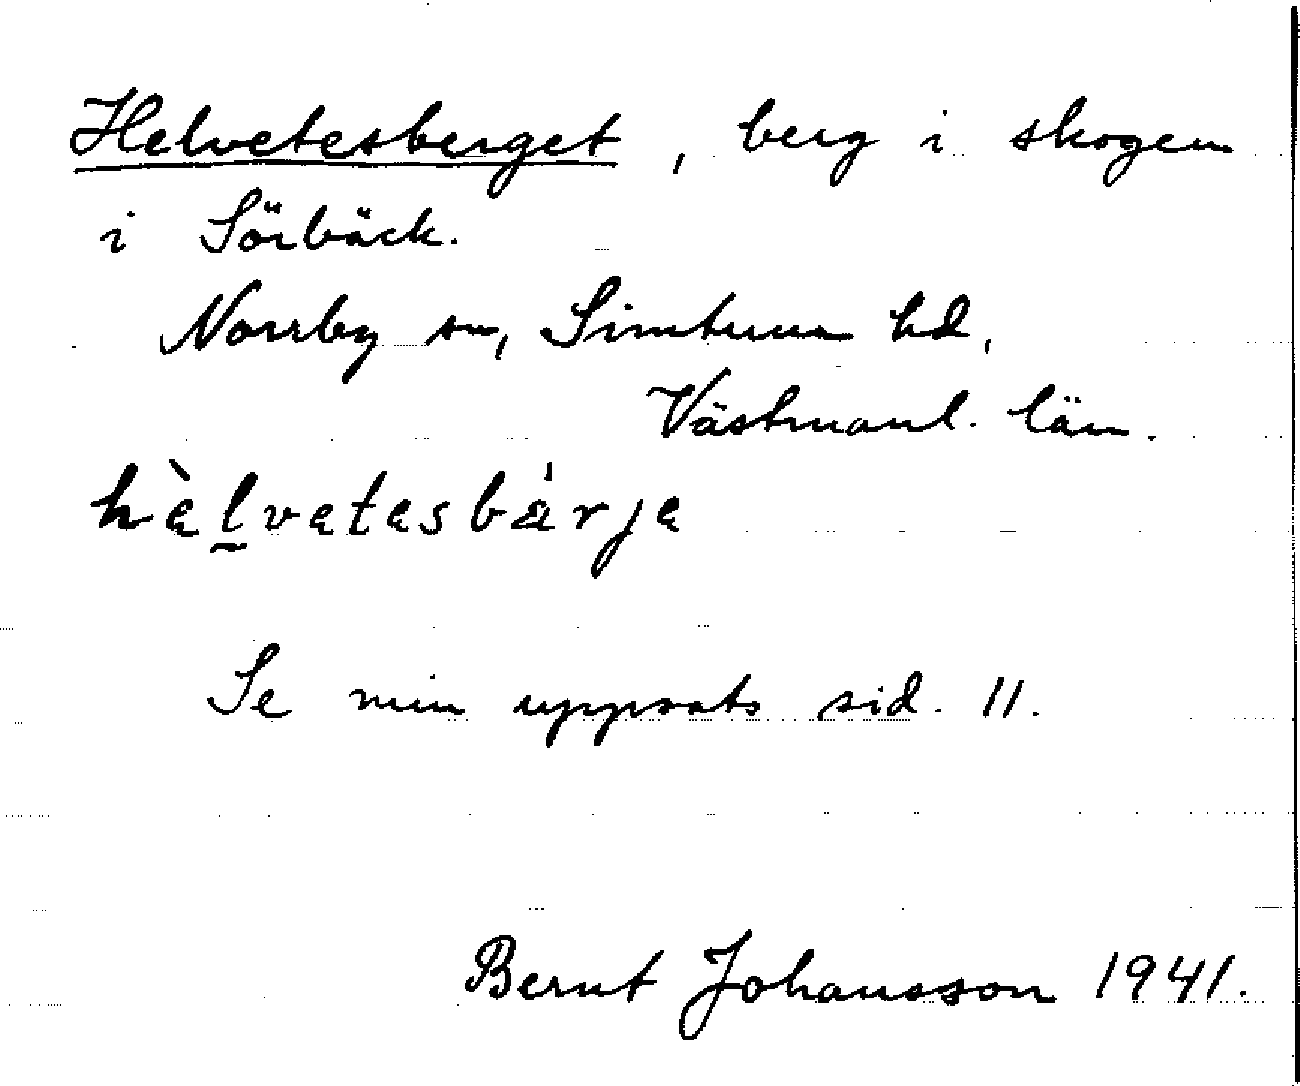 Helvetesberget, berg i skogen
i Sörbäck.
Norrby sn, Simtuna hd,
Västmanl. län.
hèlvetesbá̈rje
Se min uppsats sid. 11.
Bernt Johansson 1941.